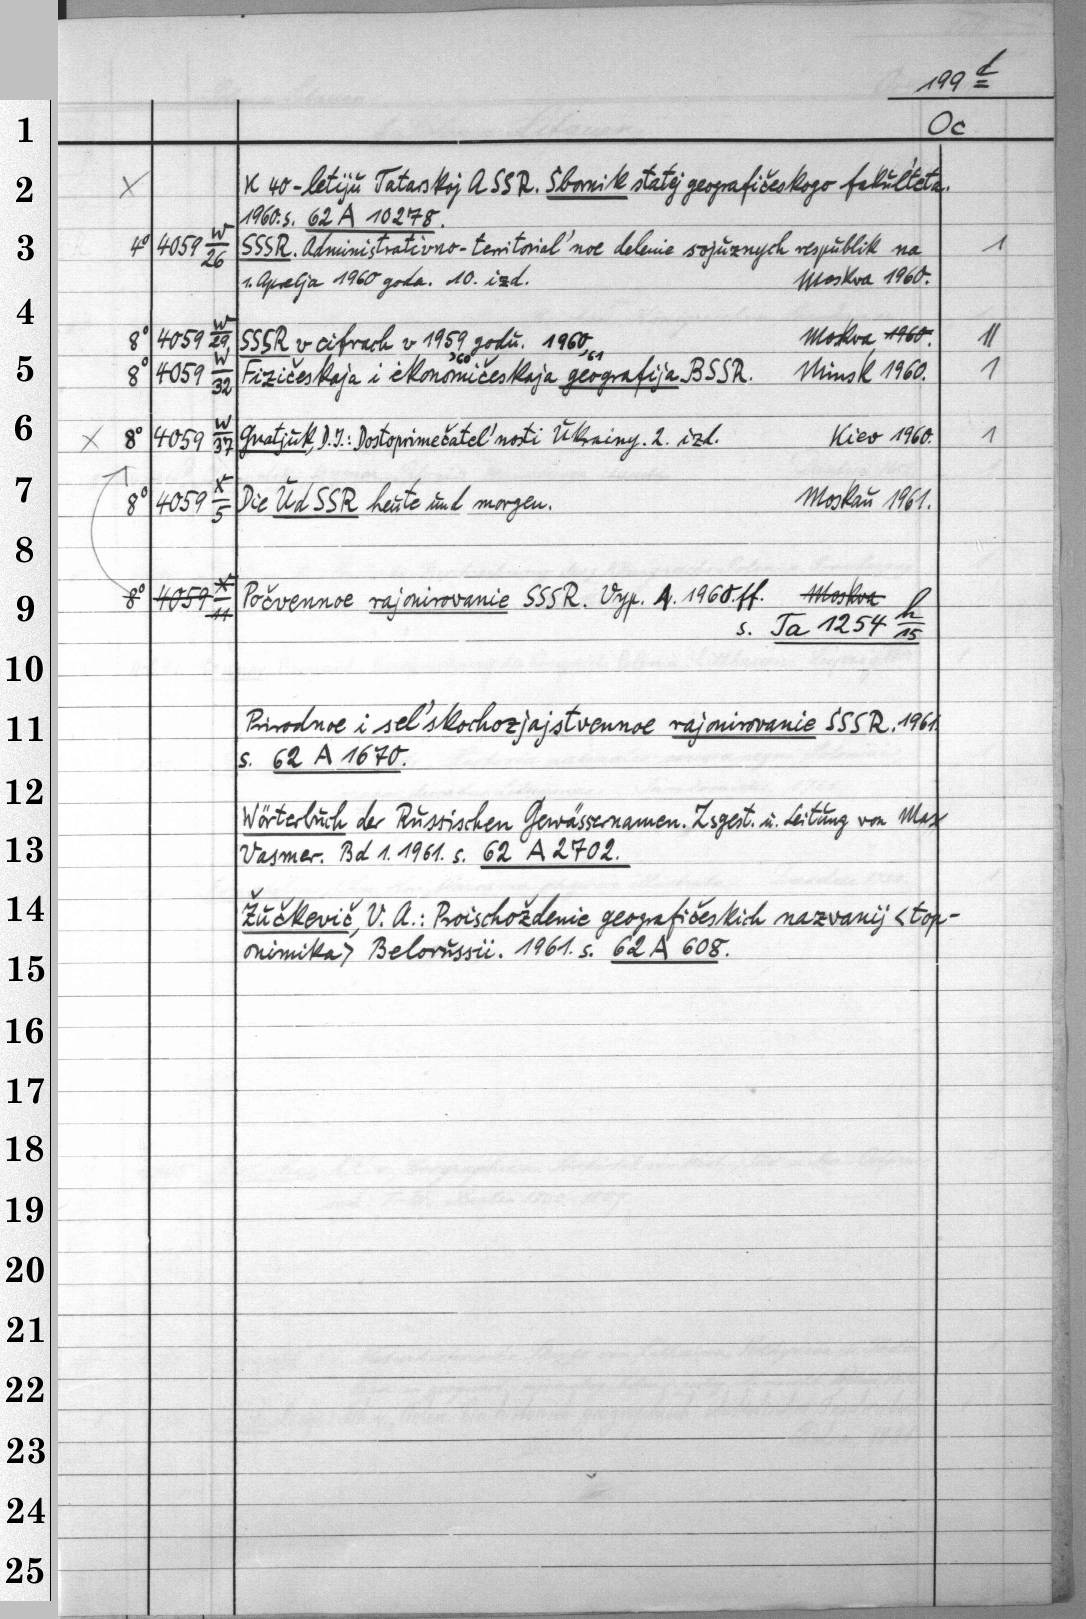 199 d
Oc
1
2 × K 40-letijŭ Tatarskoj ASSR. Sbornik statej geografičeskogo fakŭl'teta.
1960. s. 62 A 10278.
3 4° 4059 W/26 SSSR. Administrativno-territorial'noe delenie sojŭznych respŭblik na 1
1. Aprelja 1960 goda. 10. izd. Moskva 1960.
4
8° 4059 W/29 SSSR v cifrach v 1959 godŭ. 1960 Moskva 1960. II
'60 '61
5 8° 4059 W/32 Fizičeskaja i ėkonomičeskaja geografija BSSR. Minsk 1960. 1
6 × 8° 4059 W/37 Gnatjŭk, D. I.: Dostoprimečatel'nosti Ŭkrainy. 2. izd. Kiev 1960. 1
7 8° 4059 X/5 Die ŬdSSR heŭte ŭnd morgen. Moskaŭ 1961.
8
9 8° 4059 X/11 Počvennoe rajonirovanie SSSR. Vyp. 1. 1960ff. Moskva
s. Ta 1254 h/15
10
11 Prirodnoe i sel'skochozjajstvennoe rajonirovanie SSSR. 1961.
s. 62 A 1670.
12
Wörterbŭch der Rŭssischen Gewässernamen. Zsgest. ŭ. Leitŭng von Max
13 Vasmer. Bd 1. 1961. s. 62 A 2702.
14 Žŭčkevič, V. A.: Proischoždenie geografičeskich nazvanij <top-
onimika> Belorŭssii. 1961. s. 62 A 608.
15
16
17
18
19
20
21
22
23
24
25